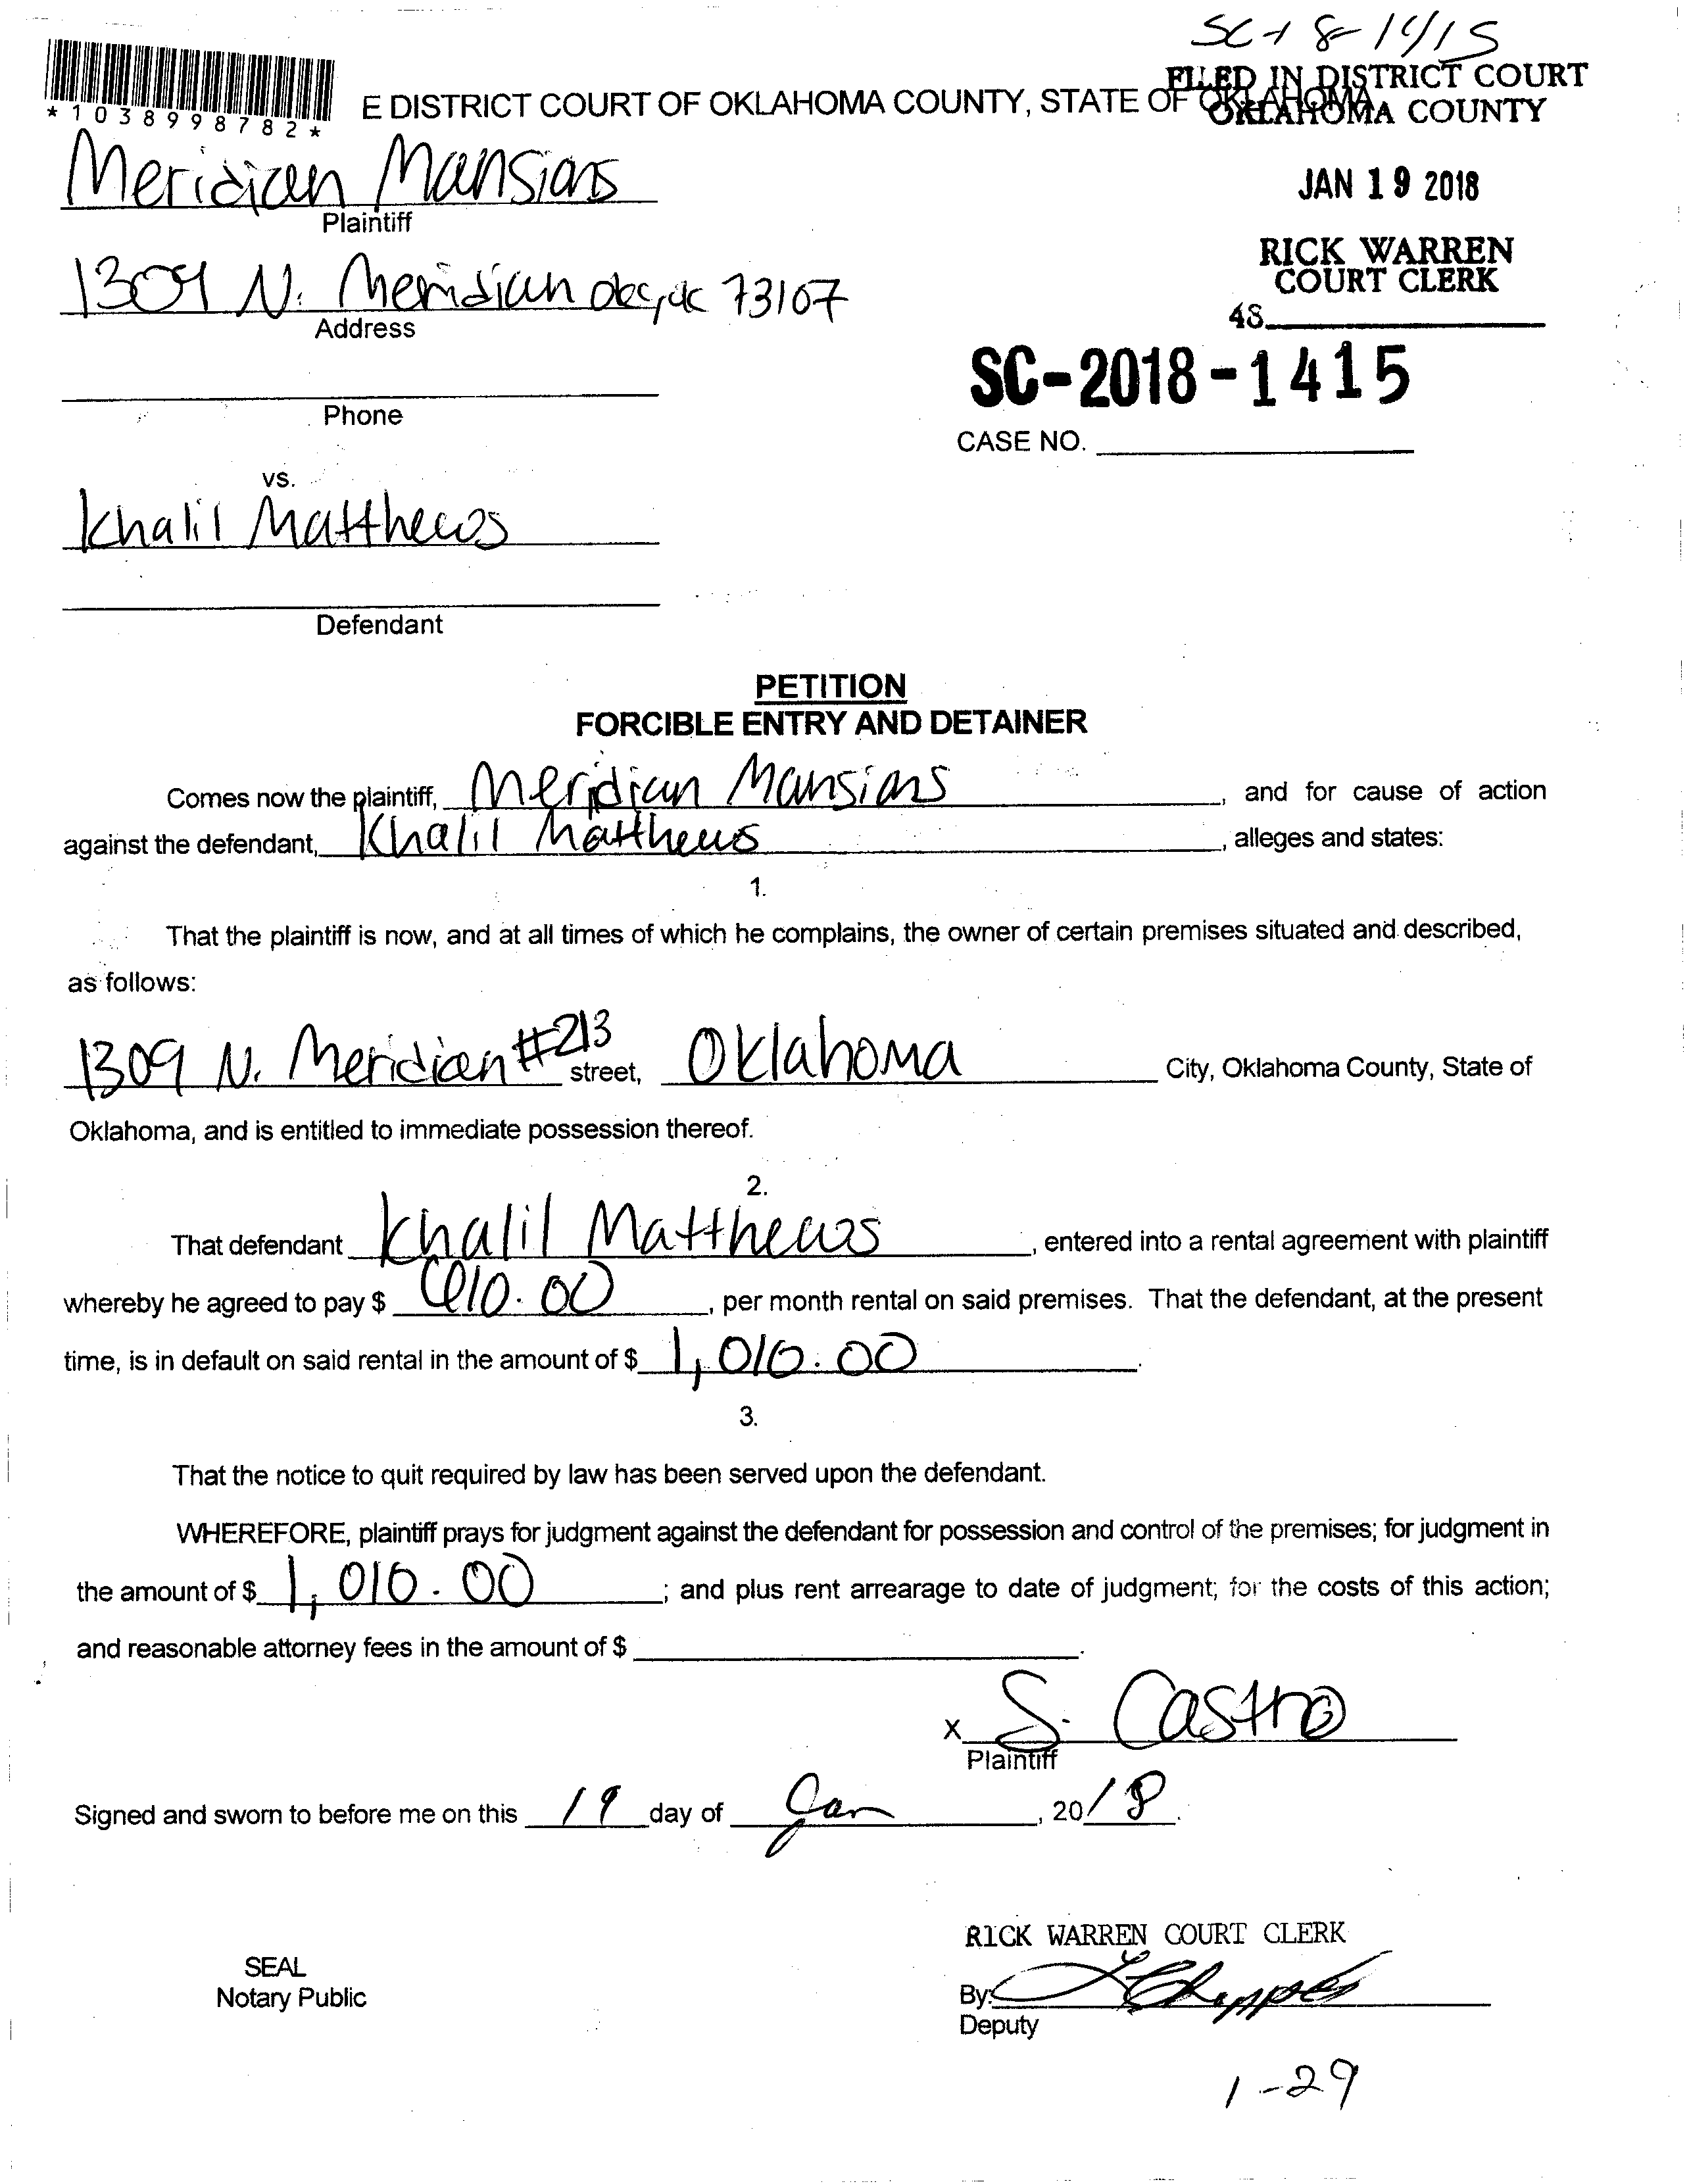 SC-18-1415
FILED IN DISTRICT COURT
E DISTRICT COURT OF OKLAHOMA COUNTY, STATE OF OKLAHOMA
OKLAHOMA COUNTY
*1038998782*
Meridian Mansions
JAN 19 2018
Plaintiff
RICK WARREN
COURT CLERK
1309 N. Meridian okc, ok 73107
48
Address
SC-2018-1415
Phone
CASE NO.
vs.
Khalil Matthews
Defendant
PETITION
FORCIBLE ENTRY AND DETAINER
Comes now the plaintiff, Meridian Mansions, and for cause of action
against the defendant, Khalil Matthews, alleges and states:
1.
That the plaintiff is now, and at all times of which he complains, the owner of certain premises situated and described,
as follows:
1309 N. Meridian #213 street, Oklahoma City, Oklahoma County, State of
Oklahoma, and is entitled to immediate possession thereof.
2.
That defendant Khalil Matthews, entered into a rental agreement with plaintiff
whereby he agreed to pay $ 610.00, per month rental on said premises. That the defendant, at the present
time, is in default on said rental in the amount of $ 1,010.00.
3.
That the notice to quit required by law has been served upon the defendant.
WHEREFORE, plaintiff prays for judgment against the defendant for possession and control of the premises; for judgment in
the amount of $ 1,010.00; and plus rent arrearage to date of judgment; for the costs of this action;
and reasonable attorney fees in the amount of $
x S. Castro
Plaintiff
Signed and sworn to before me on this 19 day of Jan, 2018.
RICK WARREN COURT CLERK
SEAL
Notary Public
By:
Deputy
1-29